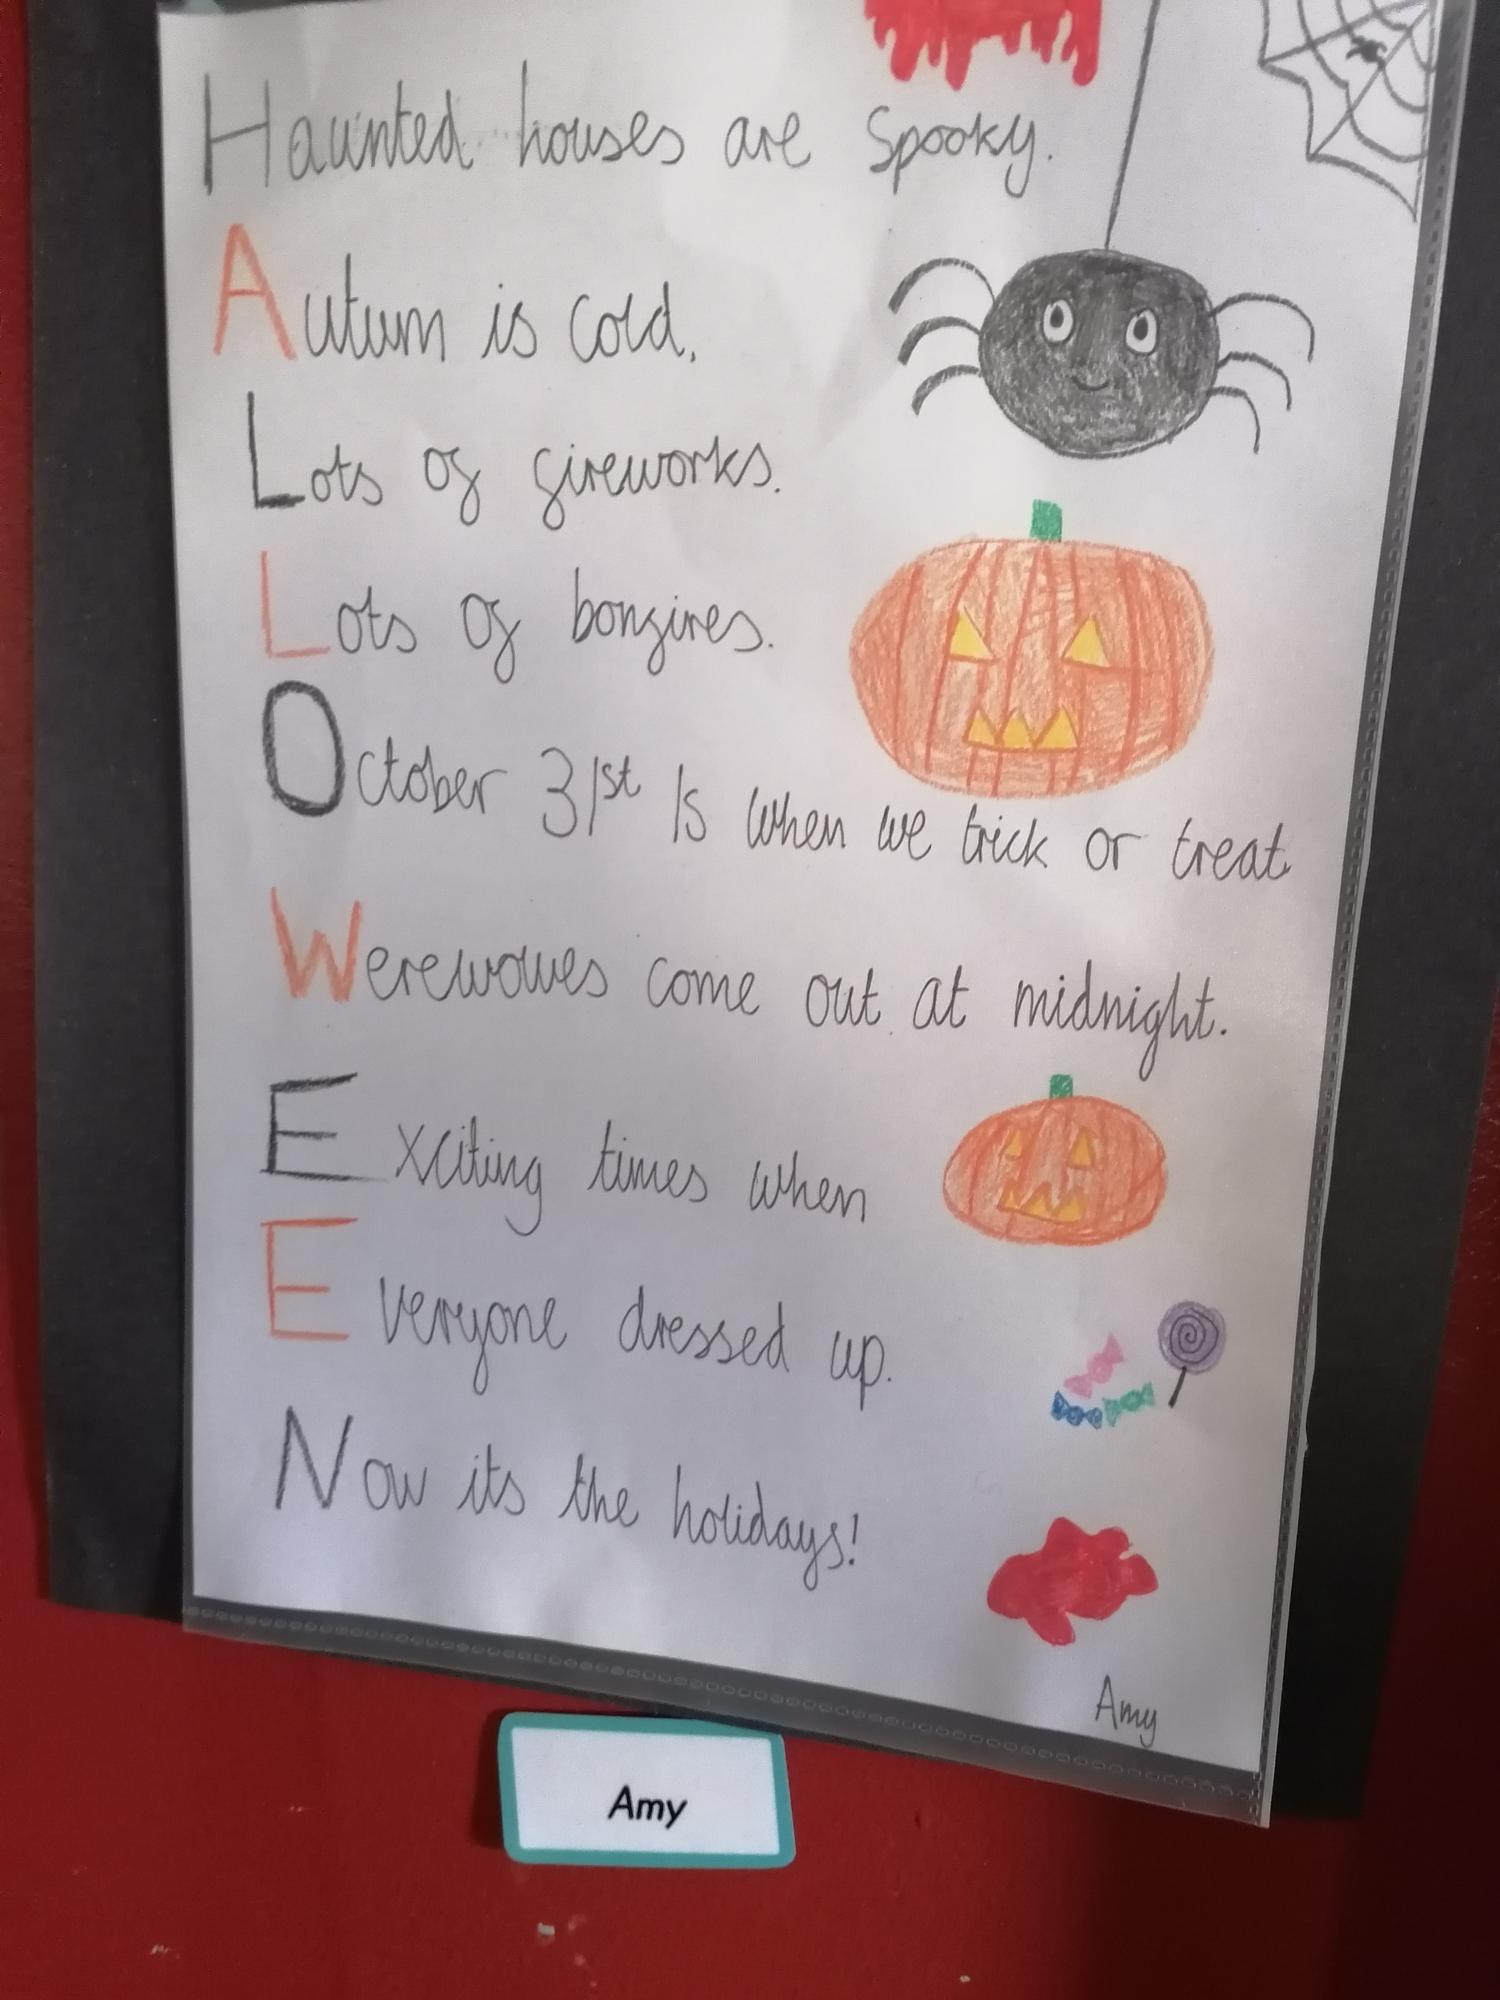 Haunted houses are spooky.
Autum is cold.
Lots of fireworks.
Lots of bonfires.
October 31st Is when we trick or treat
Werewolves come out at midnight.
Exciting times when
Everyone dressed up.
Now its the holidays!
Amy
Amy